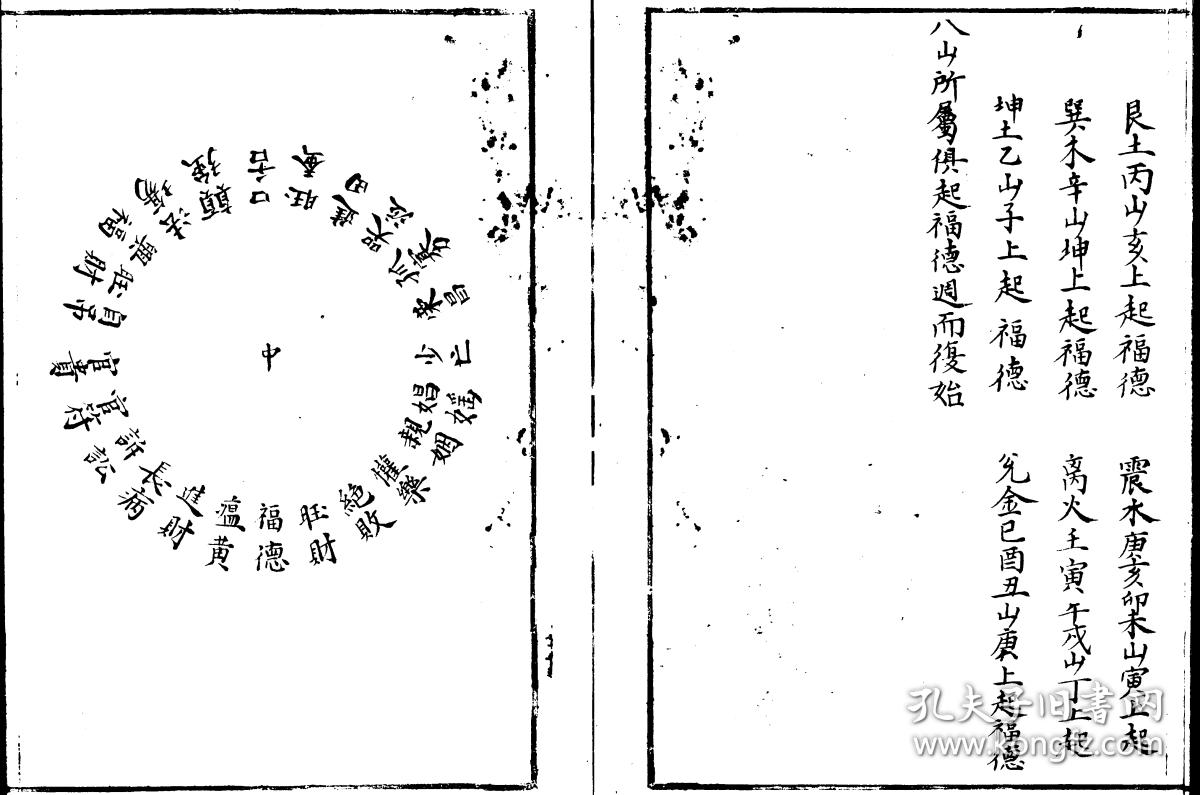 艮土丙山亥上起福德
震水庚亥卯未山寅上起
巽木辛山坤上起福德
离火壬寅午戌山丁上起
坤土乙山子上起福德
兊金巳酉丑山庚上起福德
八山所屬俱起福德週而復始
中
福德
瘟黄
進財
長病
訴訟
官符
官貴
自吊
旺財
興福
法場
顛
口舌
旺蚕
進田
哭泣
孤寡
榮昌
少亡
娼婬
親姻
懽樂
絕敗
旺財
孔夫子旧書网
www.kongfz.com